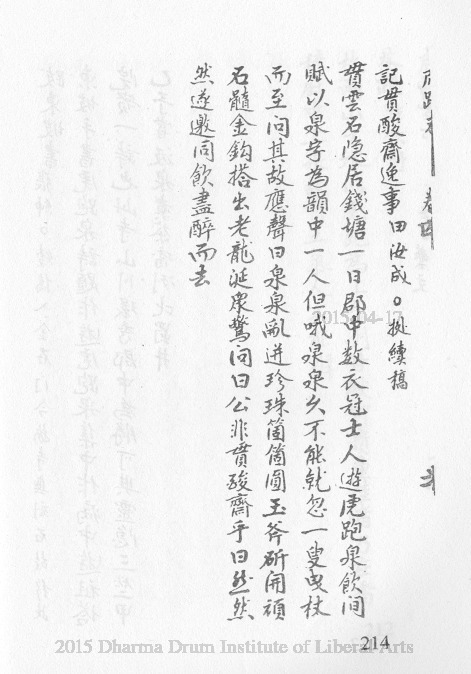 虎跑志 卷四
記貫酸齋逸事 田汝成 ○挻續稿
貫雲石隐居錢塘一日郡中数衣冠士人遊虎跑泉飲间
賦以泉字為韻中一人但哦泉泉久不能就忽一叟曳杖
而至问其故應聲曰泉泉亂迸珍珠箇箇圓玉斧斫開頑
石髓金鈎搭出老龍涎衆驚问曰公非貫酸齋乎曰然然
然遂邀同飲盡醉而去
2015-04-17
214
2015 Dharma Drum Institute of Liberal Arts